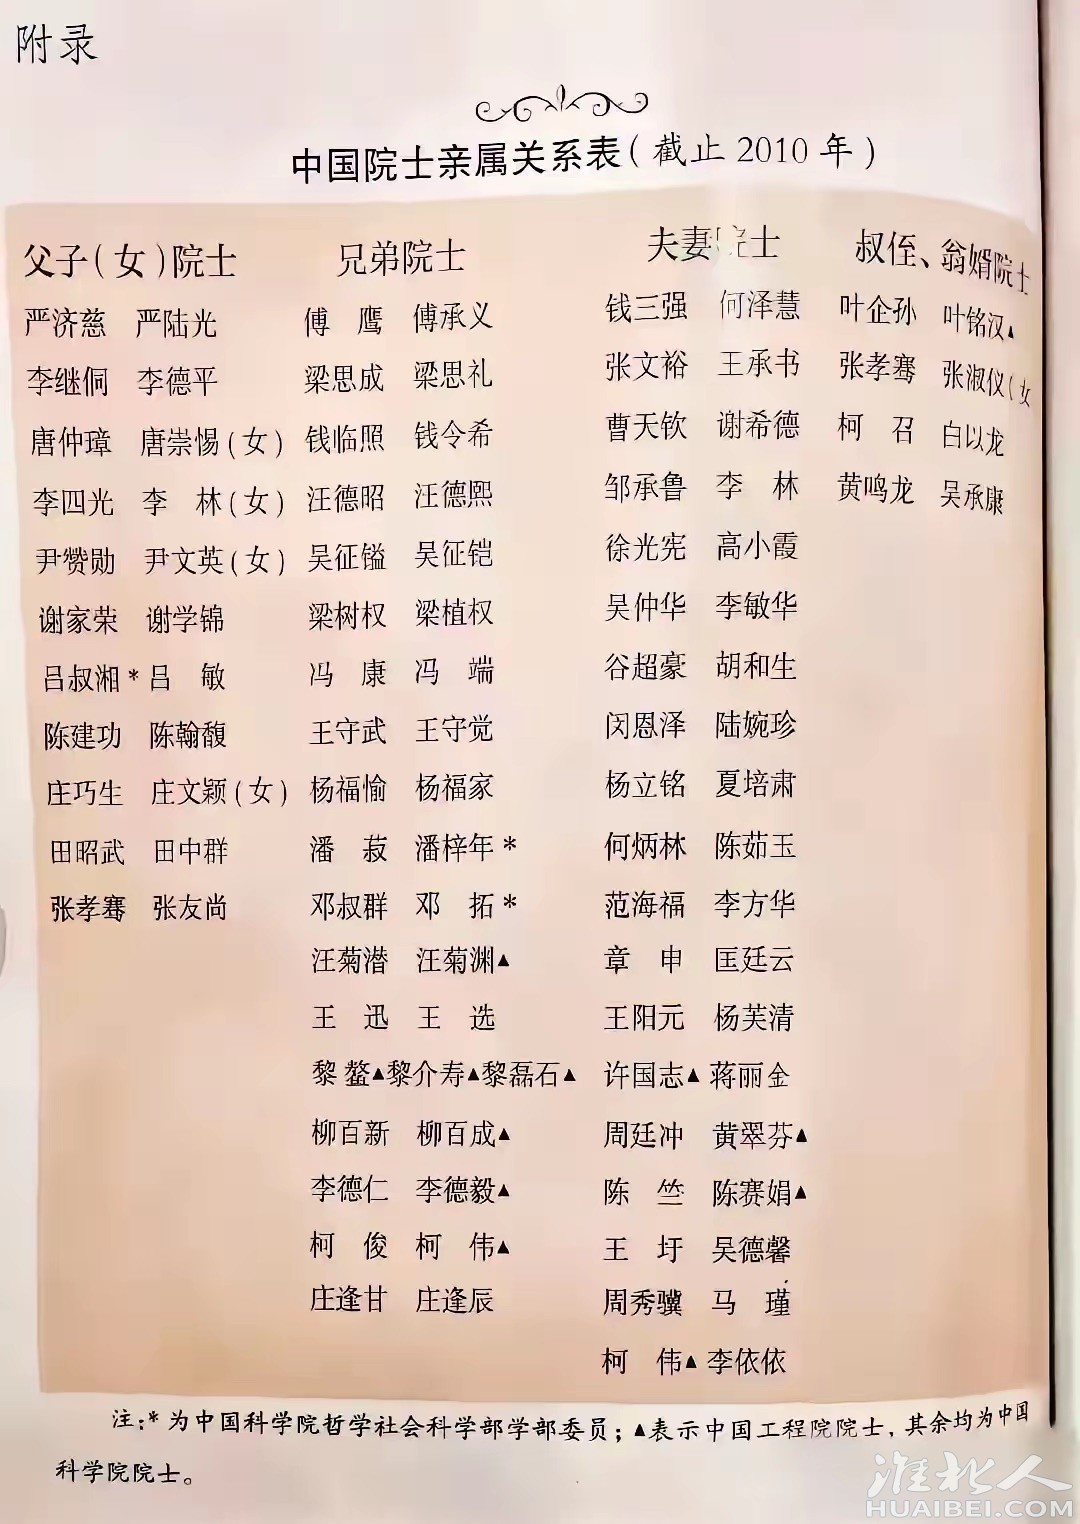 附录
中国院士亲属关系表(截止2010年)
父子(女)院士 兄弟院士 夫妻院士 叔侄、翁婿院士
严济慈 严陆光 傅鹰 傅承义 钱三强 何泽慧 叶企孙 叶铭汉▲
李继侗 李德平 梁思成 梁思礼 张文裕 王承书 张孝骞 张淑仪(女
唐仲璋 唐崇惕(女) 钱临照 钱令希 曹天钦 谢希德 柯召 白以龙
李四光 李林(女) 汪德昭 汪德熙 邹承鲁 李林 黄鸣龙 吴承康
尹赞勋 尹文英(女) 吴征镒 吴征铠 徐光宪 高小霞
谢家荣 谢学锦 梁树权 梁植权 吴仲华 李敏华
吕叔湘* 吕敏 冯康 冯端 谷超豪 胡和生
陈建功 陈翰馥 王守武 王守觉 闵恩泽 陆婉珍
庄巧生 庄文颖(女) 杨福愉 杨福家 杨立铭 夏培肃
田昭武 田中群 潘菽 潘梓年* 何炳林 陈茹玉
张孝骞 张友尚 邓叔群 邓拓* 范海福 李方华
汪菊潜 汪菊渊▲ 章申 匡廷云
王迅 王选 王阳元 杨芙清
黎鳌▲黎介寿▲黎磊石▲ 许国志▲ 蒋丽金
柳百新 柳百成▲ 周廷冲 黄翠芬▲
李德仁 李德毅▲ 陈竺 陈赛娟▲
柯俊 柯伟▲ 王圩 吴德馨
庄逢甘 庄逢辰 周秀骥 马瑾
柯伟▲ 李依依
注:*为中国科学院哲学社会科学部学部委员;▲表示中国工程院院士,其余均为中国
科学院院士。
淮北人
HUAIBEI.COM